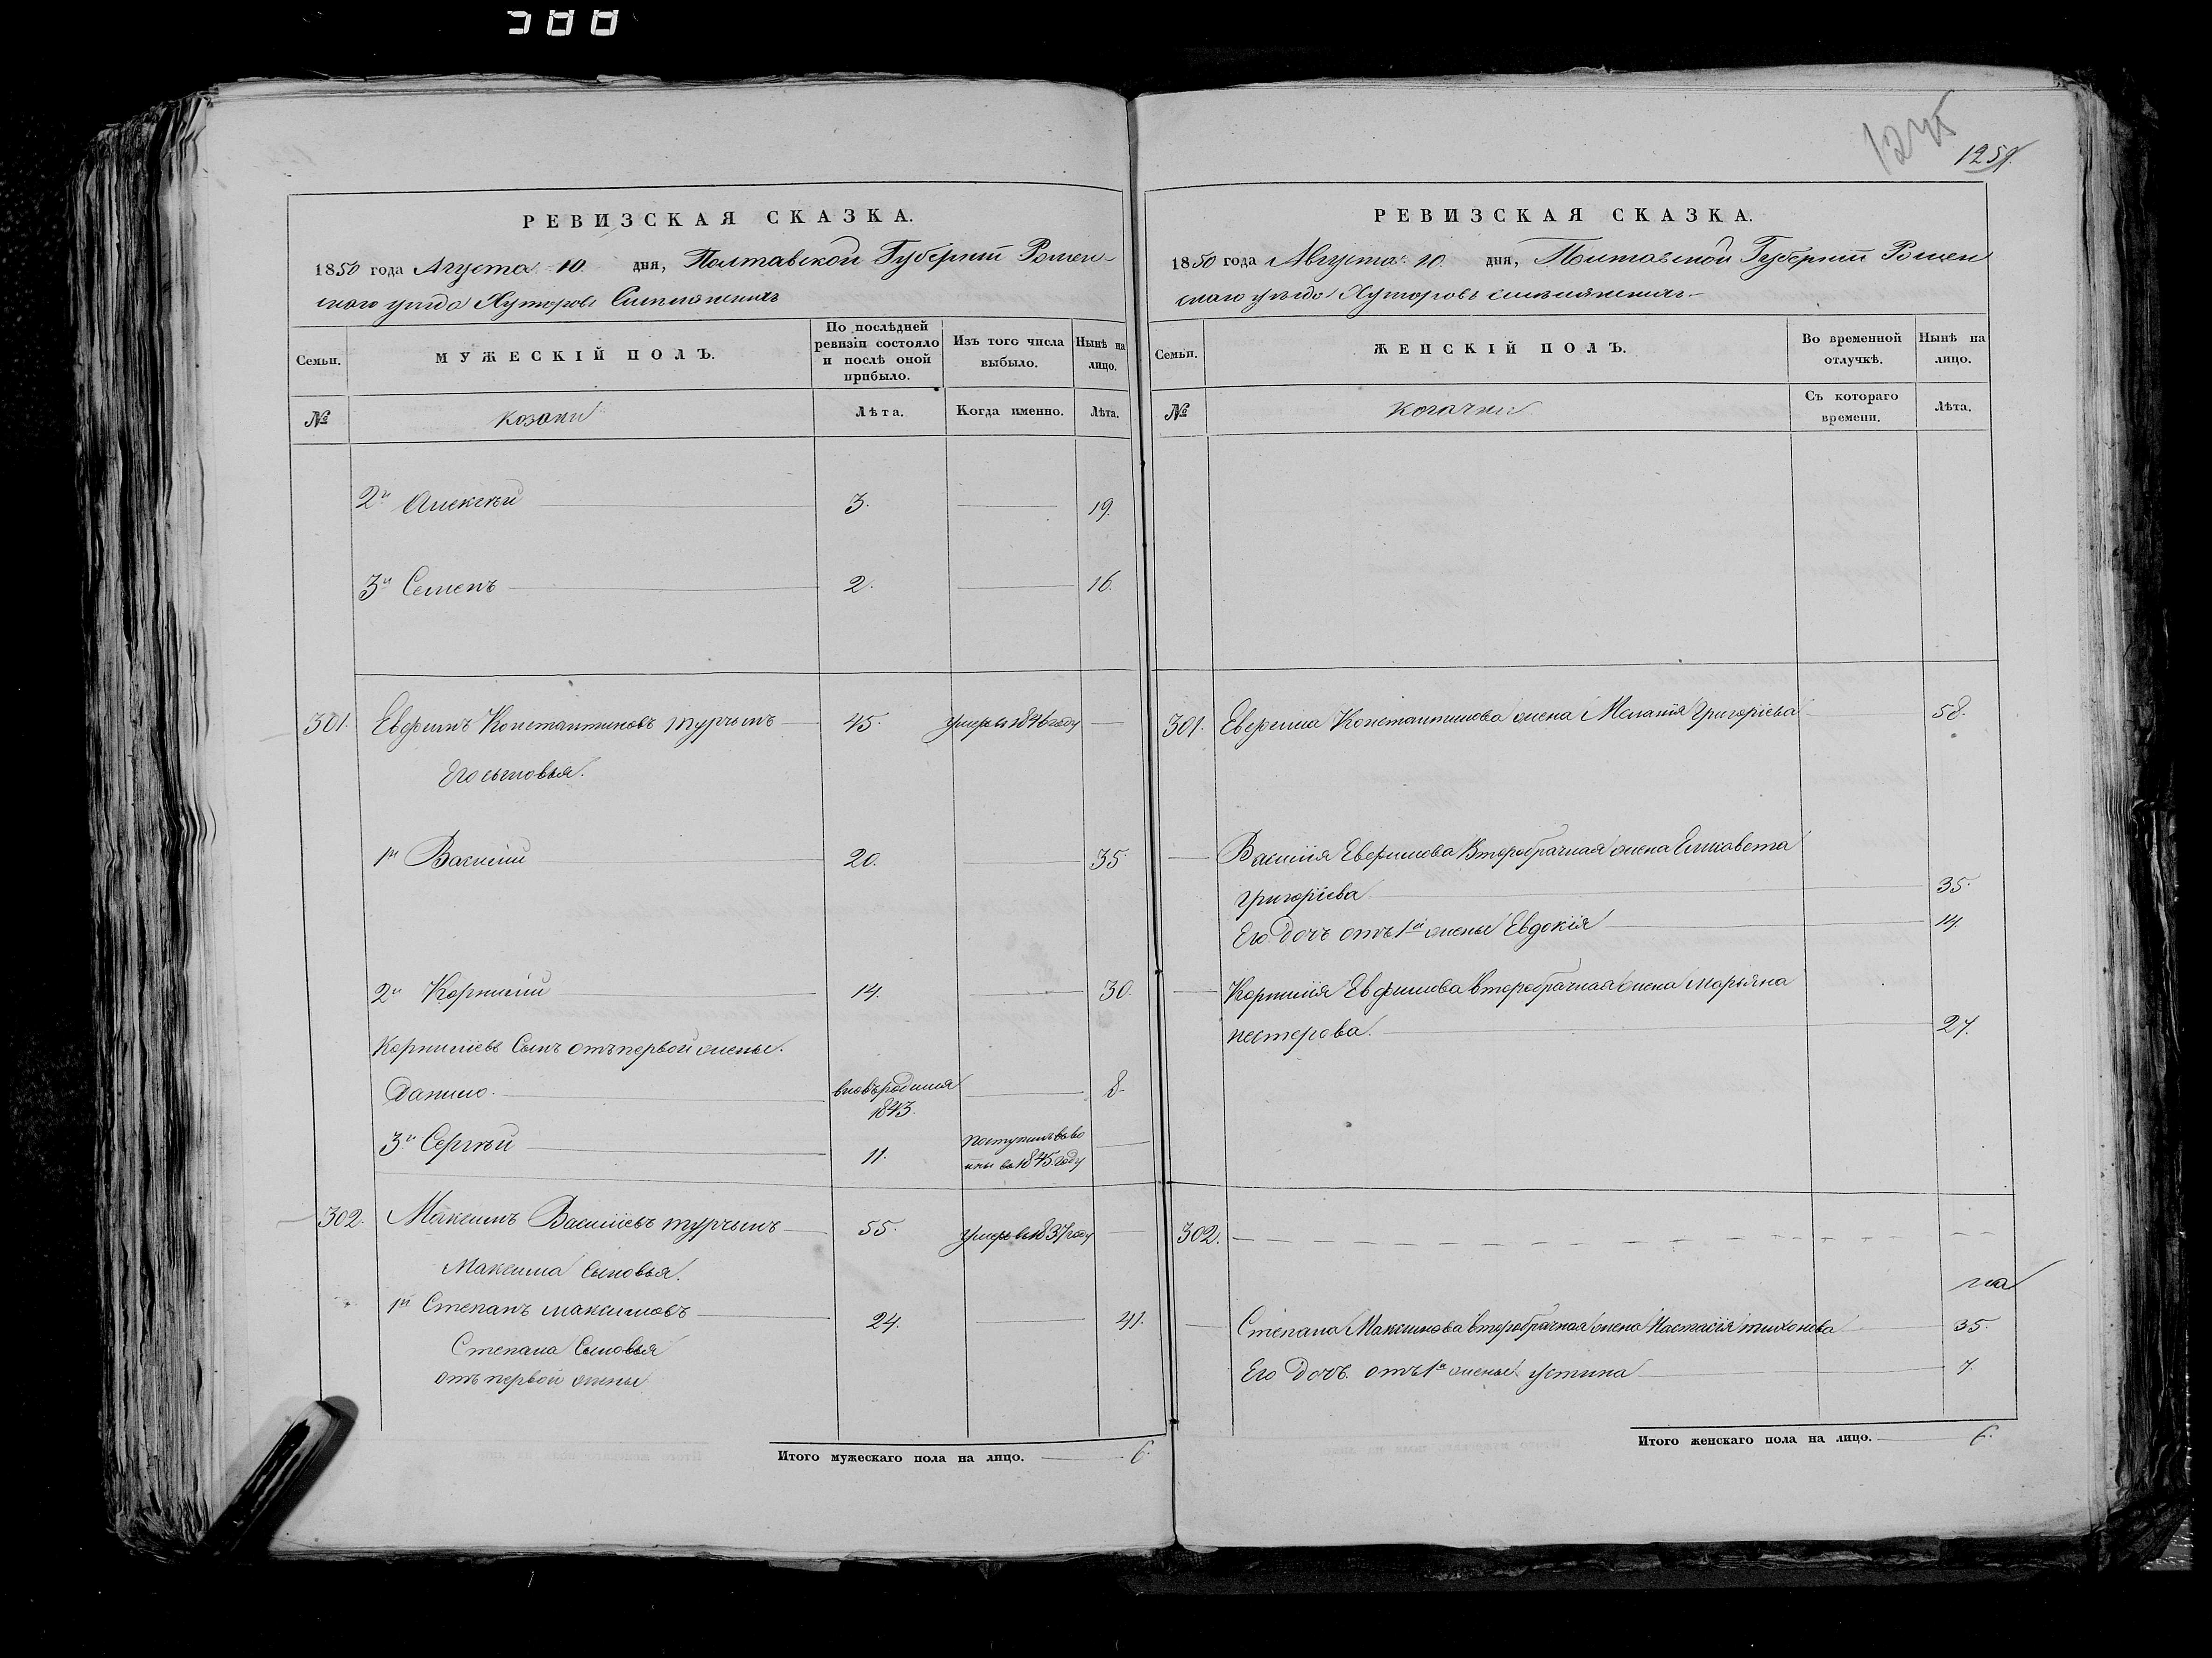 1275
1259.
РЕВИЗСКАЯ СКАЗКА.
1850 года Августа 10 дня, Полтавской Губерніи Ромен-
скаго уезда Хуторовъ
Семьи.
МУЖЕСКІЙ ПОЛЪ.
По послѣдней ревизіи состояло и послѣ оной прибыло.
Изъ того числа выбыло.
Нынѣ на лицо.
№
козаки
Лѣта.
Когда именно.
Лѣта.
2й Алексѣй 3. 19.
3й Семенъ 2. 16.
301. Евфимъ Константиновъ Турчынъ 45. умеръ в 1846 году
Его сыновья.
1й Василій 20. 35.
2й Корнилій 14. 30.
Корниліевъ Сынъ отъ первой жены.
Данило. вновь родился 1843. 8.
3й Сергѣй 11. в 1845 году
302. Максимъ Василіевъ Турчынъ 55. умеръ в 1837 году
Максима Сыновья.
1й Степанъ Максимовъ 24. 41.
Степана Сыновья
отъ первой жены
Итого мужескаго пола на лицо. 6.
РЕВИЗСКАЯ СКАЗКА.
1850 года Августа 10 дня, Полтавской Губерніи Ромен
скаго уезда Хуторовъ
Семьи.
ЖЕНСКІЙ ПОЛЪ.
Во временной отлучкѣ.
Нынѣ на лицо.
№
козачки
Съ котораго времени.
Лѣта.
301. Евфима Константинова жена Меланія Григоріева 58.
Василія Евфимова Второбрачная жена Елисавета
Григоріева 35.
Его дочъ отъ 1й жены Евдокія 14.
Корнилія Евфимова второбрачная жена Марьяна
Нестерова. 27.
302.
Степана Максимова второбрачная жена Настасія Тихонова 35.
Его Дочъ отъ 1й жены Устина 7.
Итого женскаго пола на лицо. 6.